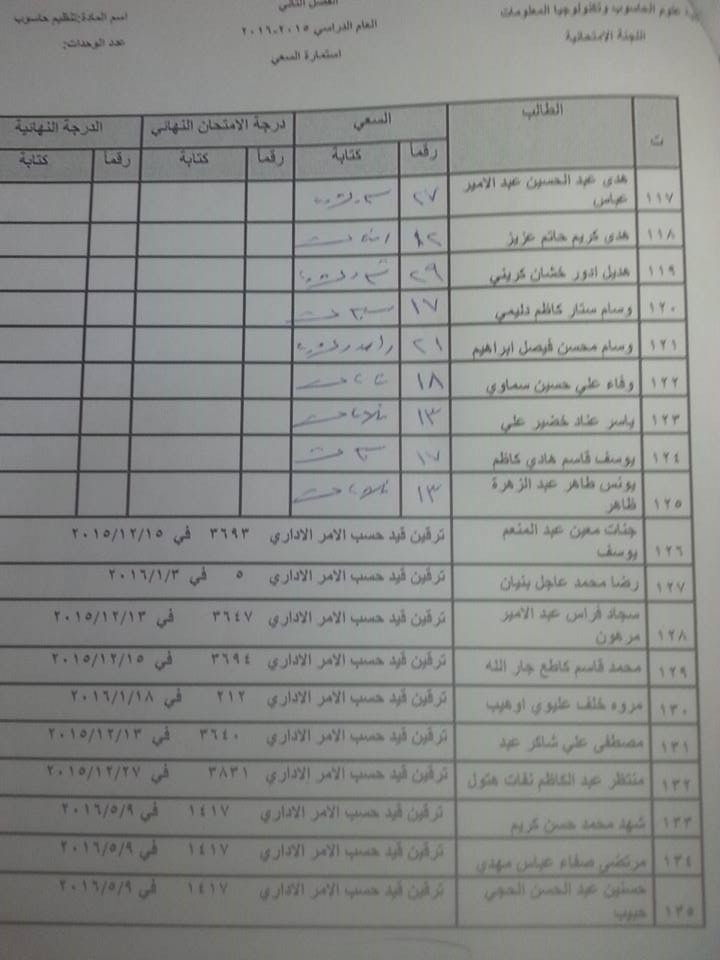 علوم الحاسوب وتكنولوجيا المعلومات
اللجنة الامتحانية
الفصل الثاني
العام الدراسي ٢٠١٥-٢٠١٦
استمارة السعي
اسم المادة:تنظيم حاسوب
عدد الوحدات:
ت الطالب السعي درجة الامتحان النهائي الدرجة النهائية
رقما كتابة رقما كتابة رقما كتابة
١١٧ هدى عبد الحسين عبد الامير عباس ٢٧ سبع وعشرون
١١٨ هدى كريم حاتم عزيز ١٢ اثنا عشر
١١٩ هديل ادور خشان كريني ٢٩ تسع وعشرون
١٢٠ وسام ستار كاظم دليمي ١٧ سبع عشر
١٢١ وسام محسن فيصل ابراهيم ٢١ واحد وعشرون
١٢٢ وفاء علي حسين سماوي ١٨
١٢٣ ياسر عناد خضير علي ١٣ ثلاث عشر
١٢٤ يوسف قاسم هادي كاظم ١٧ سبع عشر
١٢٥ يونس طاهر عبد الزهرة ظاهر ١٣ ثلاث عشر
١٢٦ جنات معين عبد المنعم يوسف ترقين قيد حسب الامر الاداري ٣٦٩٣ في ٢٠١٥/١٢/١٥
١٢٧ رضا محمد عاجل بنيان ترقين قيد حسب الامر الاداري ٥ في ٢٠١٦/١/٣
١٢٨ سجاد فراس عبد الامير مرهون ترقين قيد حسب الامر الاداري ٣٦٤٧ في ٢٠١٥/١٢/١٣
١٢٩ محمد قاسم كاطع جار الله ترقين قيد حسب الامر الاداري ٣٦٩٤ في ٢٠١٥/١٢/١٥
١٣٠ مروه خلف عليوي اوهيب ترقين قيد حسب الامر الاداري ٢١٢ في ٢٠١٦/١/١٨
١٣١ مصطفى علي شاكر عبد ترقين قيد حسب الامر الاداري ٣٦٤٠ في ٢٠١٥/١٢/١٣
١٣٢ منتظر عبد الكاظم نفات هتول ترقين قيد حسب الامر الاداري ٣٨٣١ في ٢٠١٥/١٢/٢٧
١٣٣ شهد محمد حسن كريم ترقين قيد حسب الامر الاداري ١٤١٧ في ٢٠١٦/٥/٩
١٣٤ مرتضى صفاء عباس مهدي ترقين قيد حسب الامر الاداري ١٤١٧ في ٢٠١٦/٥/٩
١٣٥ حسنين عبد الحسن الحجي حبيب ترقين قيد حسب الامر الاداري ١٤١٧ في ٢٠١٦/٥/٩